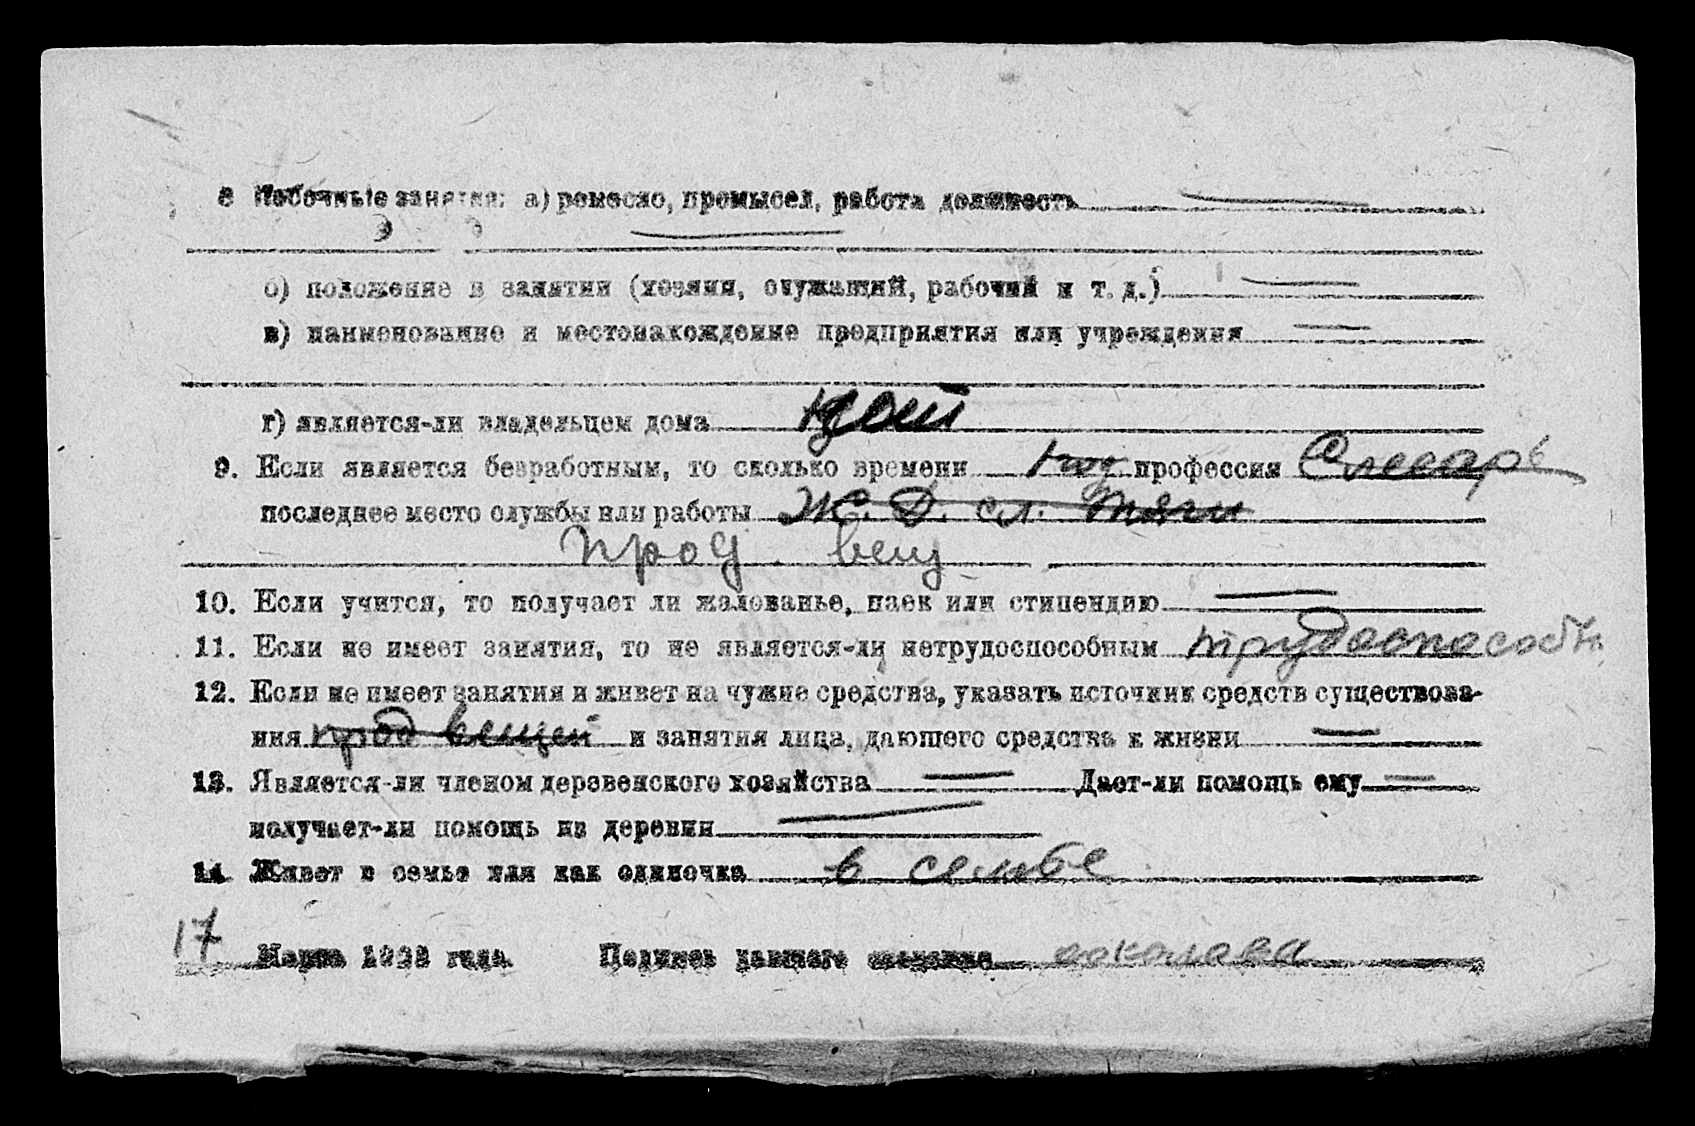 8 Побочные занятия: а) ремесло, промысел, работа должность
б) положение в занятии (хозяин, служащий, рабочий и т. д.)
в) наименование и местонахождение предприятия или учреждения
г) является-ли владельцем дома
9. Если является безработным, то сколько времени 1 год профессия Слесарь
последнее место службы или работы Ж. Д. сл. тяги
прод. вещ
10. Если учится, то получает ли жалованье, паек или стипендию
11. Если не имеет занятия, то не является-ли нетрудоспособным трудоспособн.
12. Если не имеет занятия и живет на чужие средства, указать источник средств существова-
ния прод вещей и занятия лица, дающего средства к жизни
13. Является-ли членом деревенского хозяйства Дает-ли помощь ему
получает-ли помощь из деревни
14 Живет в семье или как одиночка в семье
17 Марта 1923 года Подпись давшего сведения соколова